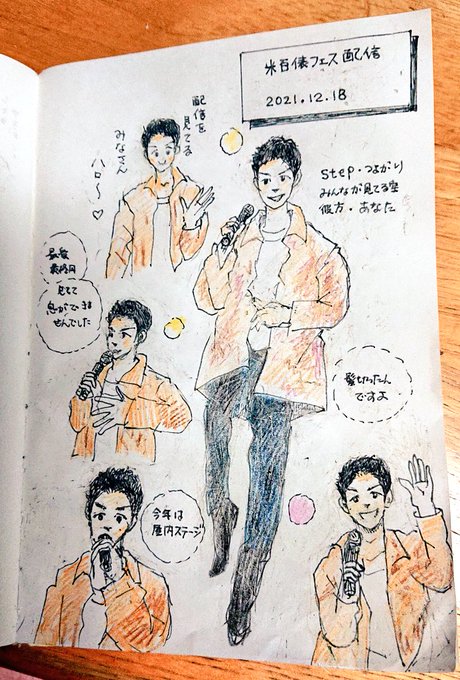 米百俵フェス配信
2021.12.18
配信を
見てる
みなさん
ハロ〜♡
Step・つよがり
みんなが見てる空
彼方・あなた
最愛
最終回
見てて
息ができま
せんでした
髪切ったん
ですよ
今年は
屋内ステージ